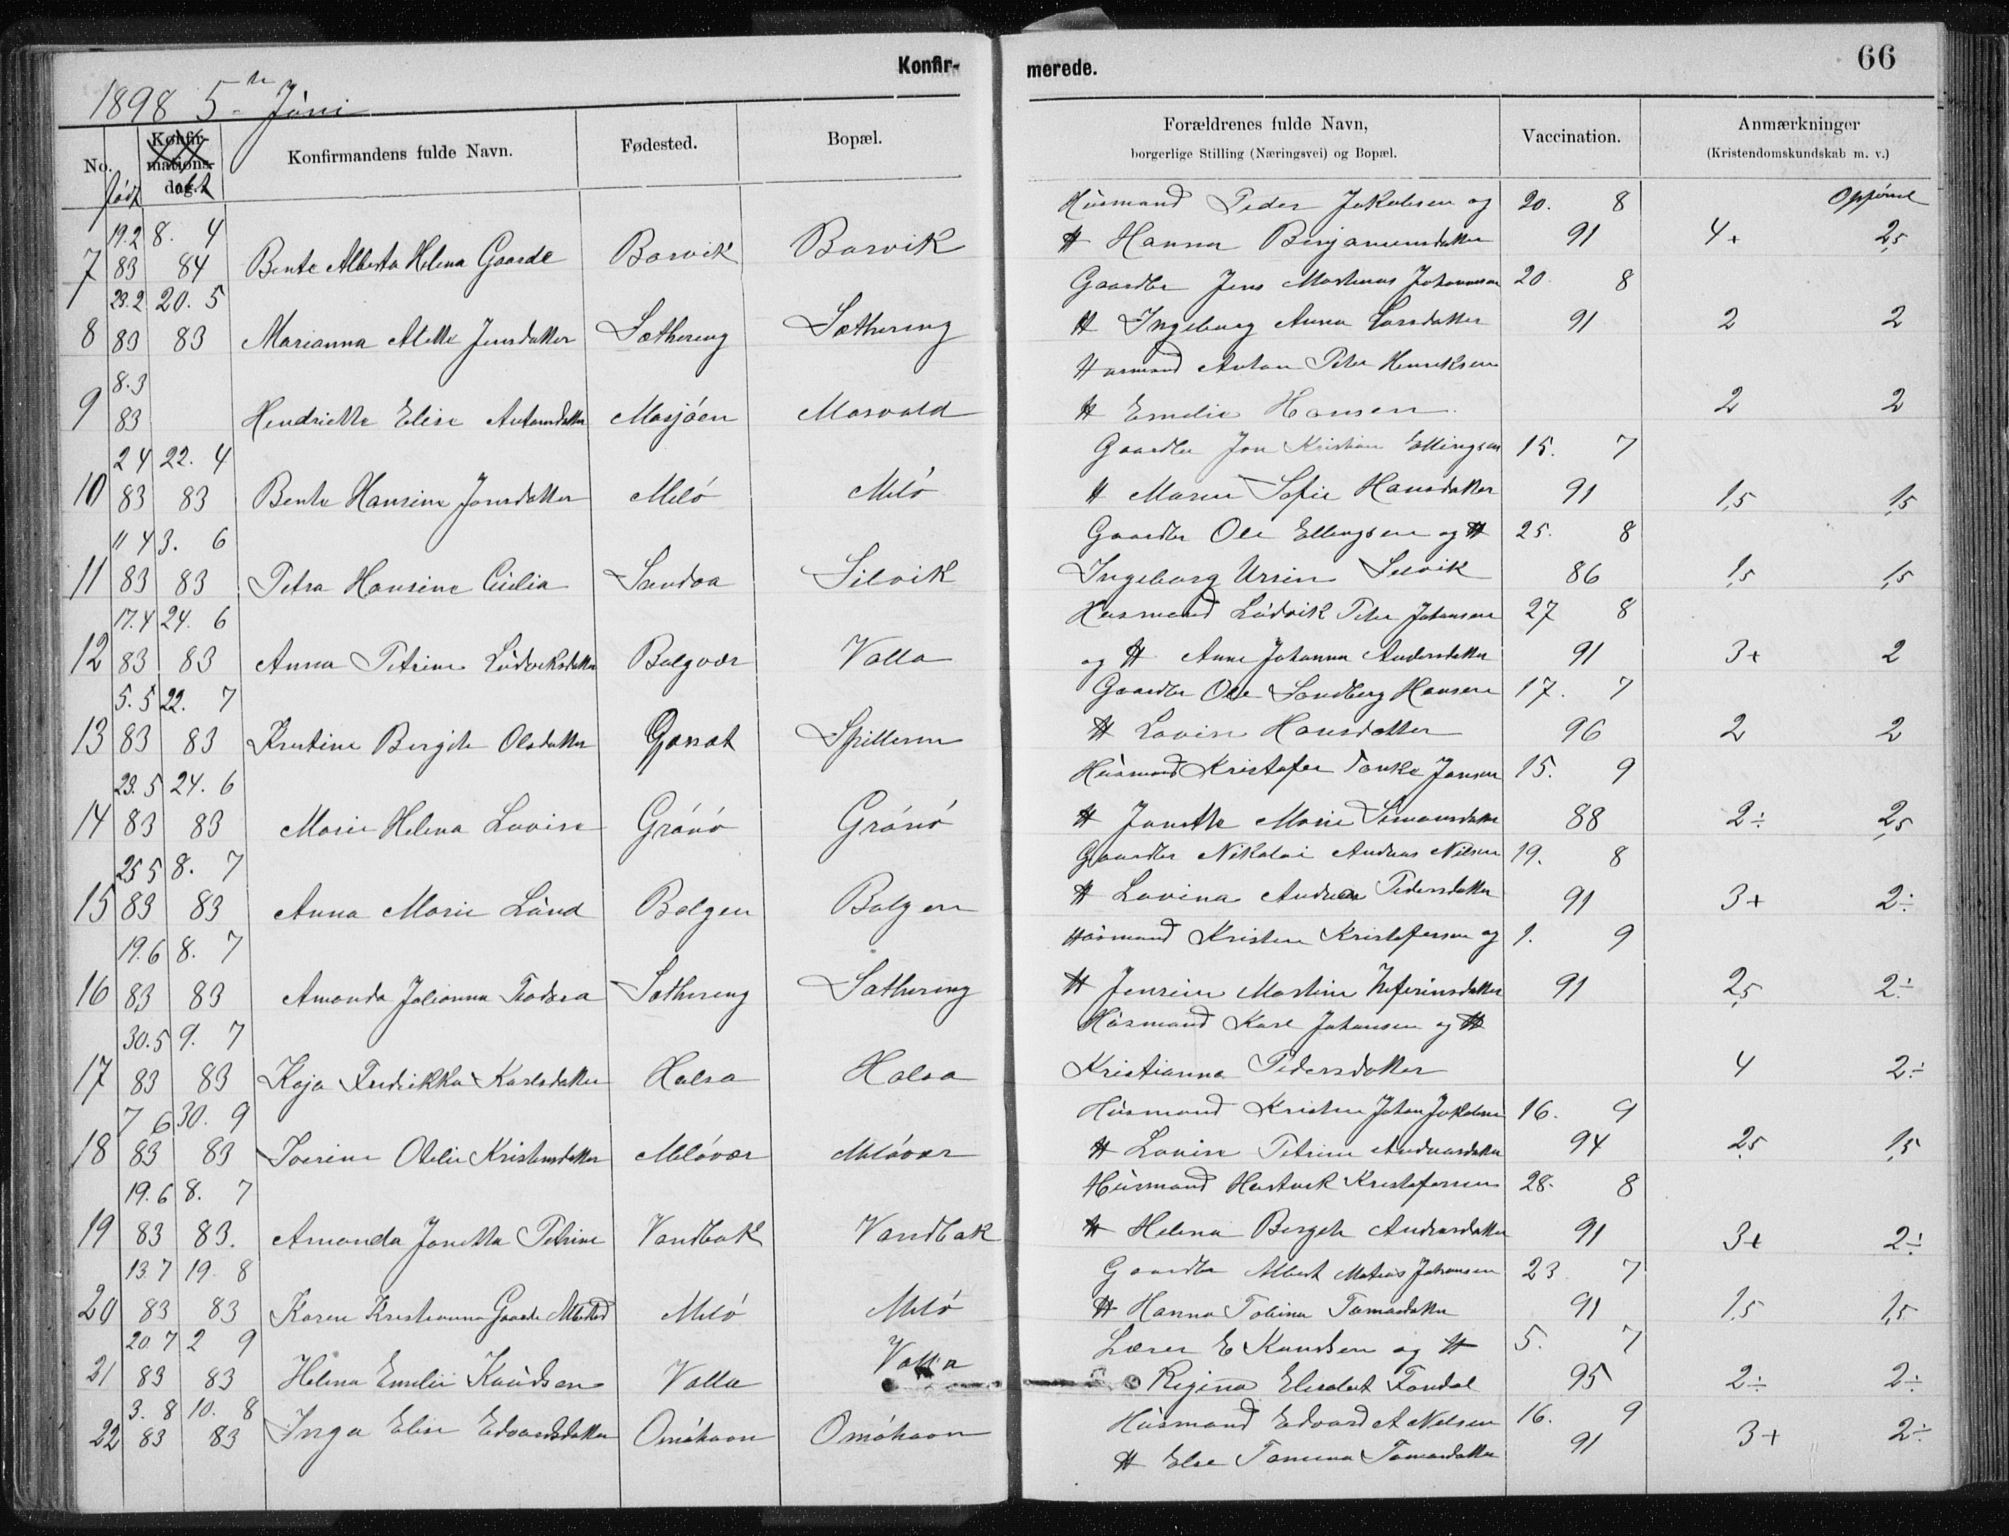 Konfir-
merede.
66
1898 5te Júni
No.
født
Konfir-
mations-
dag.
døbt
Konfirmandens fulde Navn.
Fødested.
Bopæl.
Forældrenes fulde Navn,
borgerlige Stilling (Næringsvei) og Bopæl.
Vaccination.
Anmærkninger
(Kristendomskundskab m. v.)
19.2 8. 4 Húsmand Peder Jakobsen og 20. 8
7 83 84 Bente Alberta Helena Gaarde Barvik Barvik H Hanna Benjaminsdatter 91 4+ 2,5
23.2 20. 5 Gaardbr Jens Johannesen 20. 8
8 83 83 Marianna Alette Jensdatter Sæthereng Sæthereng H Ingeborg Anna Larsdatter 91 2 2
8.3 Húsmand Anton Peter Henriksen
9 83 Hendrikke Elise Antonsdatter Mosjóen Marvold H Emelie Hansen 2 2
2 4 22. 4 Gaardbr Jon Kristian Ellingsen 15. 7
10 83 83 Bente Hansine Jonsdatter Meló Meló H Maren Sofie Hansdatter 91 1,5 1,5
11 4 3. 6 Gaardbr Ole Ellingsen og H 25. 8
11 83 83 Petra Hansine Cicilia Sandva Silvik Ingeborg Ursin Selvik 86 1,5 1,5
17.4 24. 6 Húsmand Lúdvik Peter Johansen 27 8
12 83 83 Anna Petrine Lúdviksdatter Bolgvær Valla og H Anne Johanna Andersdatter 91 3+ 2
5. 5 22. 7 Gaardbr Ole Sandberg Hansen 17. 7
13 83 83 Kristine Bergete Olsdatter Spilderen H Lovise Hansdatter 96 2 2
23. 5 24. 6 Húsmand Kristofer Tanke Jansen 15. 9
14 83 83 Marie Helena Lovise Grónó Grónó H Janette Marie Simonsdatter 88 2÷ 2,5
25 5 8. 7 Gaardbr Nikolai Andreas Nilsen 19. 8
15 83 83 Anna Marie Lúnd Bolgen Bolgen H Lovina Andrea Pedersdatter 91 3+ 2÷
19.6 8. 7 Húsmand Kristen Kristofersen og 1. 9
16 83 83 Amanda Julianna Teodora Sæthereng Sæthereng H Jensine Martine Zeferinsdatter 91 2,5 2÷
30.5 9. 7 Húsmand Karl Johansen og H
17 83 83 Kaja Fredrikka Karlsdatter Halsa Halsa Kristianna Pedersdatter 4 2÷
7 6 30. 9 Húsmand Kristen Johan Jakobsen 16. 9
18 83 83 Iverine Otelie Kristensdatter Melóvær Melóvær H Lovise Petrine Andreasdatter 94 2,5 1,5
19.6 8. 7 Húsmand Hartvik Kristofersen 28. 8
19 83 83. Amanda Janetta Petrine Vandbak Vandbak H Helena Bergete Andreasdatter 91 3+ 2÷
13.7 19. 8 Gaardbr Albert Matias Johansen 23 7
20 83 83 Karen Kristianna Gaarde Meló Meló H Hanna Tobina Tomasdatter 91 1,5 1,5
20 7 2 9 Lærer E Knudsen og H 5. 7
21 83 83 Helena Emelie Knúdsen Valla Valla Regina Elisabet Fondal 95 2÷ 2÷
3. 8 10. 8 Húsmand Edvard A Nilsen 16. 9
22 83 83 Inga Elise Edvardsdatter Omóhavn Omóhavn 91 3+ 2÷
H Else Tomina Tomasdatter